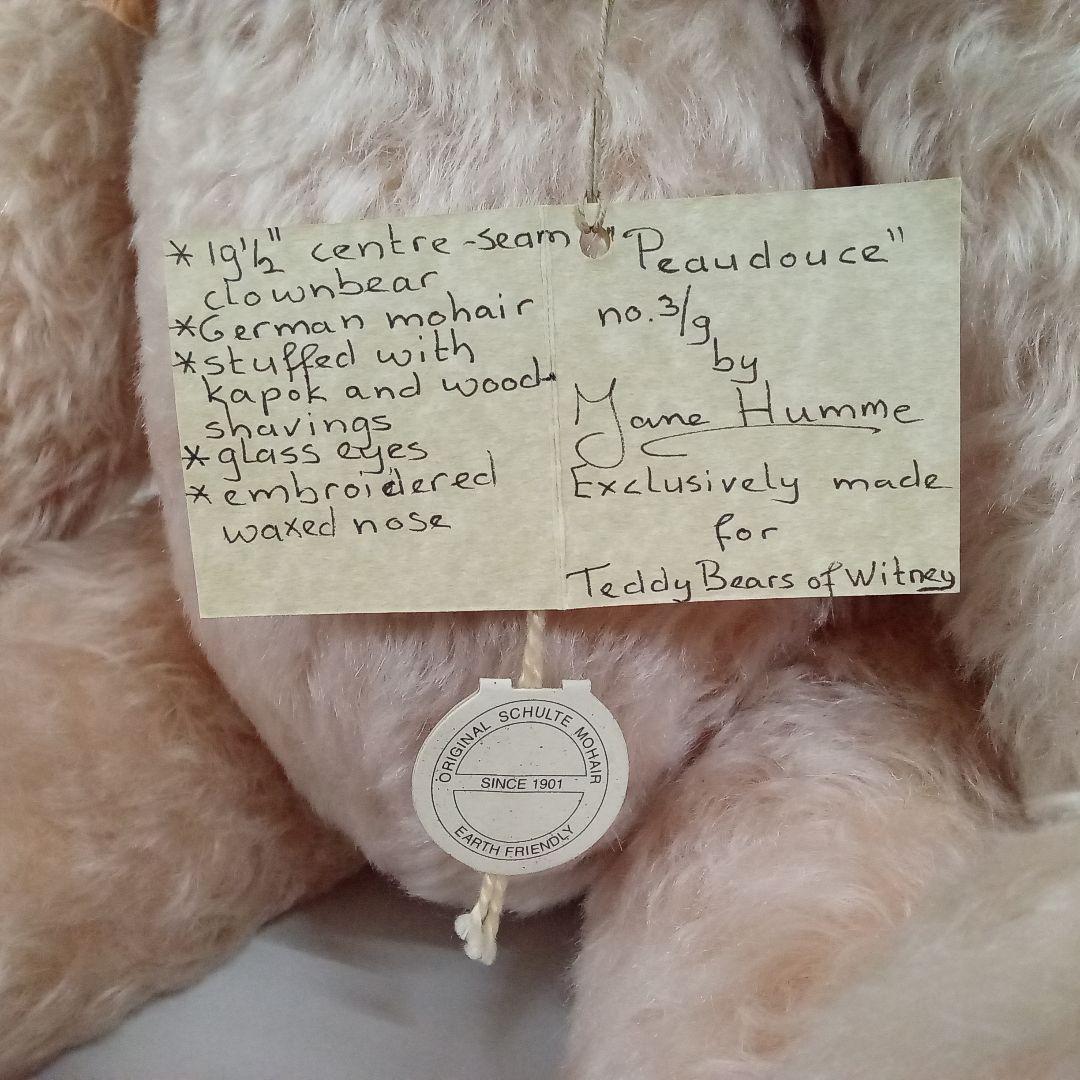 * 19½" centre-seam
clownbear
* German mohair
* stuffed with
kapok and wood
shavings
* glass eyes
* embroidered
waxed nose
"Peaudouce"
no. 3/9
by
Jane Humme
Exclusively made
for
Teddy Bears of Witney
ORIGINAL SCHULTE MOHAIR
SINCE 1901
EARTH FRIENDLY